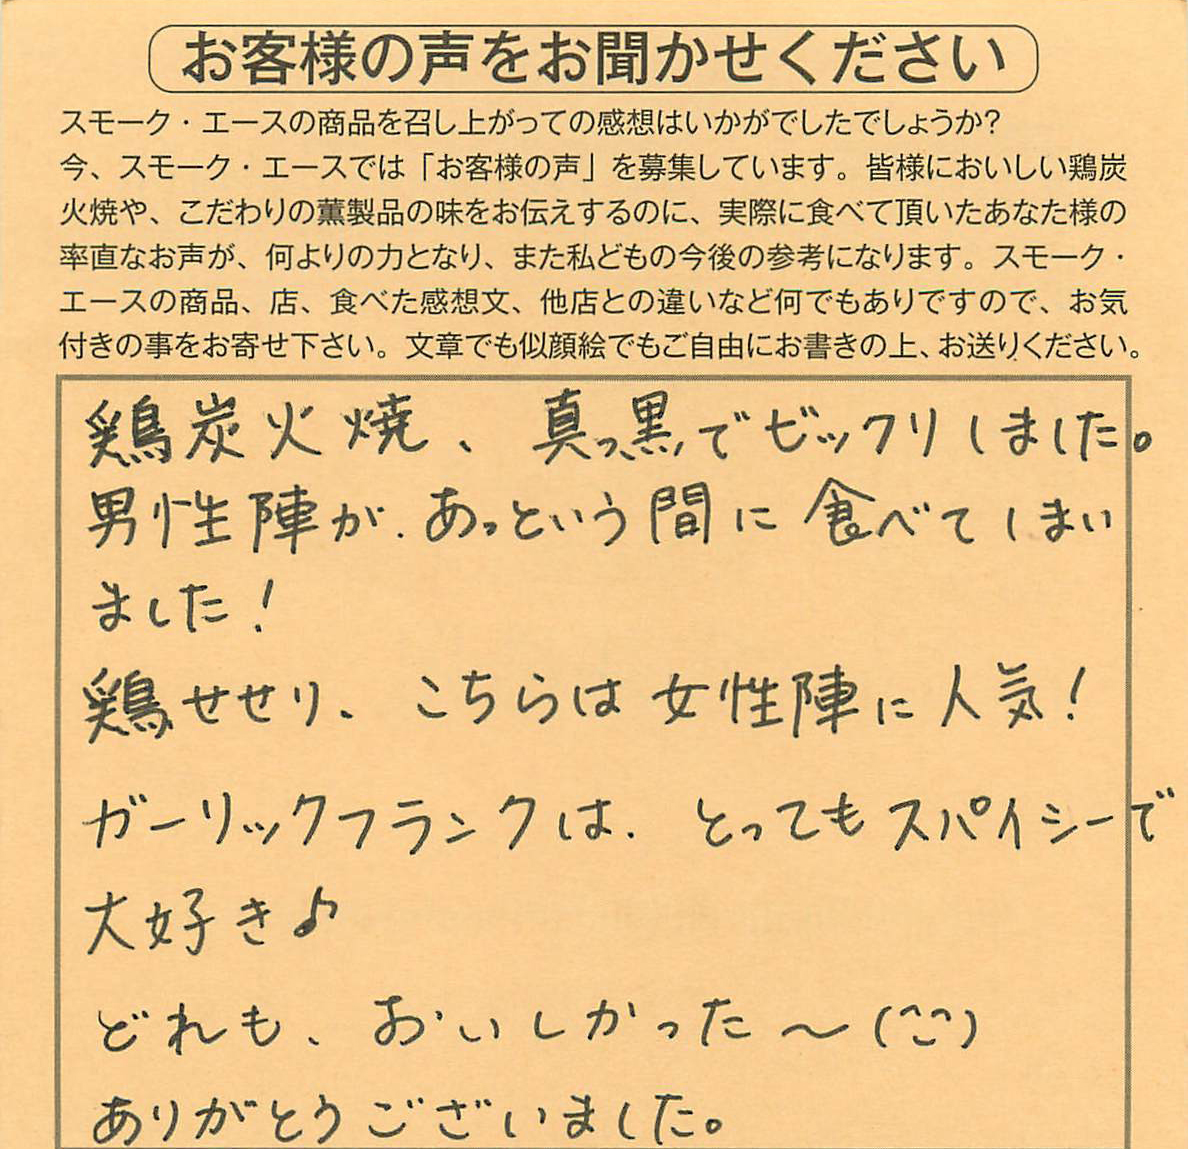 お客様の声をお聞かせください
スモーク・エースの商品を召し上がっての感想はいかがでしたでしょうか?
今、スモーク・エースでは「お客様の声」を募集しています。皆様においしい鶏炭
火焼や、こだわりの薫製品の味をお伝えするのに、実際に食べて頂いたあなた様の
率直なお声が、何よりの力となり、また私どもの今後の参考になります。スモーク・
エースの商品、店、食べた感想文、他店との違いなど何でもありですので、お気
付きの事をお寄せ下さい。文章でも似顔絵でもご自由にお書きの上、お送りください。
鶏炭火焼、真っ黒でビックリしました。
男性陣が、あっという間に食べてしまい
ました!
鶏せせり、こちらは女性陣に人気!
ガーリックフランクは、とってもスパイシーで
大好き♪
どれも、おいしかった〜(^^)
ありがとうございました。